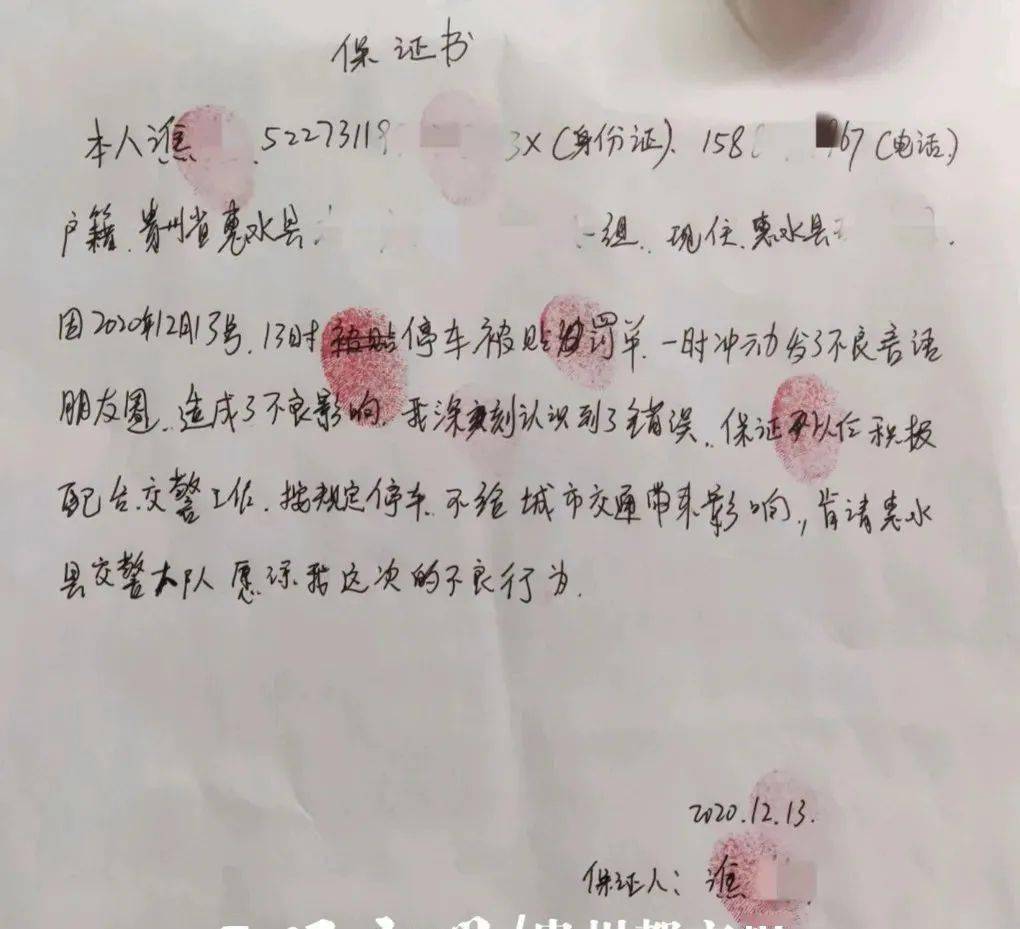 保证书
本人谯 .52273119 3X(身份证)、158 967(电话)
户籍、贵州省惠水县 一组、现住惠水县 .
因2020年12月13号、13时被贴停车被贴罚单、一时冲动发了不良言语
朋友圈、造成了不良影响、我深刻认识到了错误、保证以后积极
配合交警工作、按规定停车、不给城市交通带来影响,肯请惠水
县交警大队愿谅我这次的不良行为.
2020.12.13.
保证人:谯